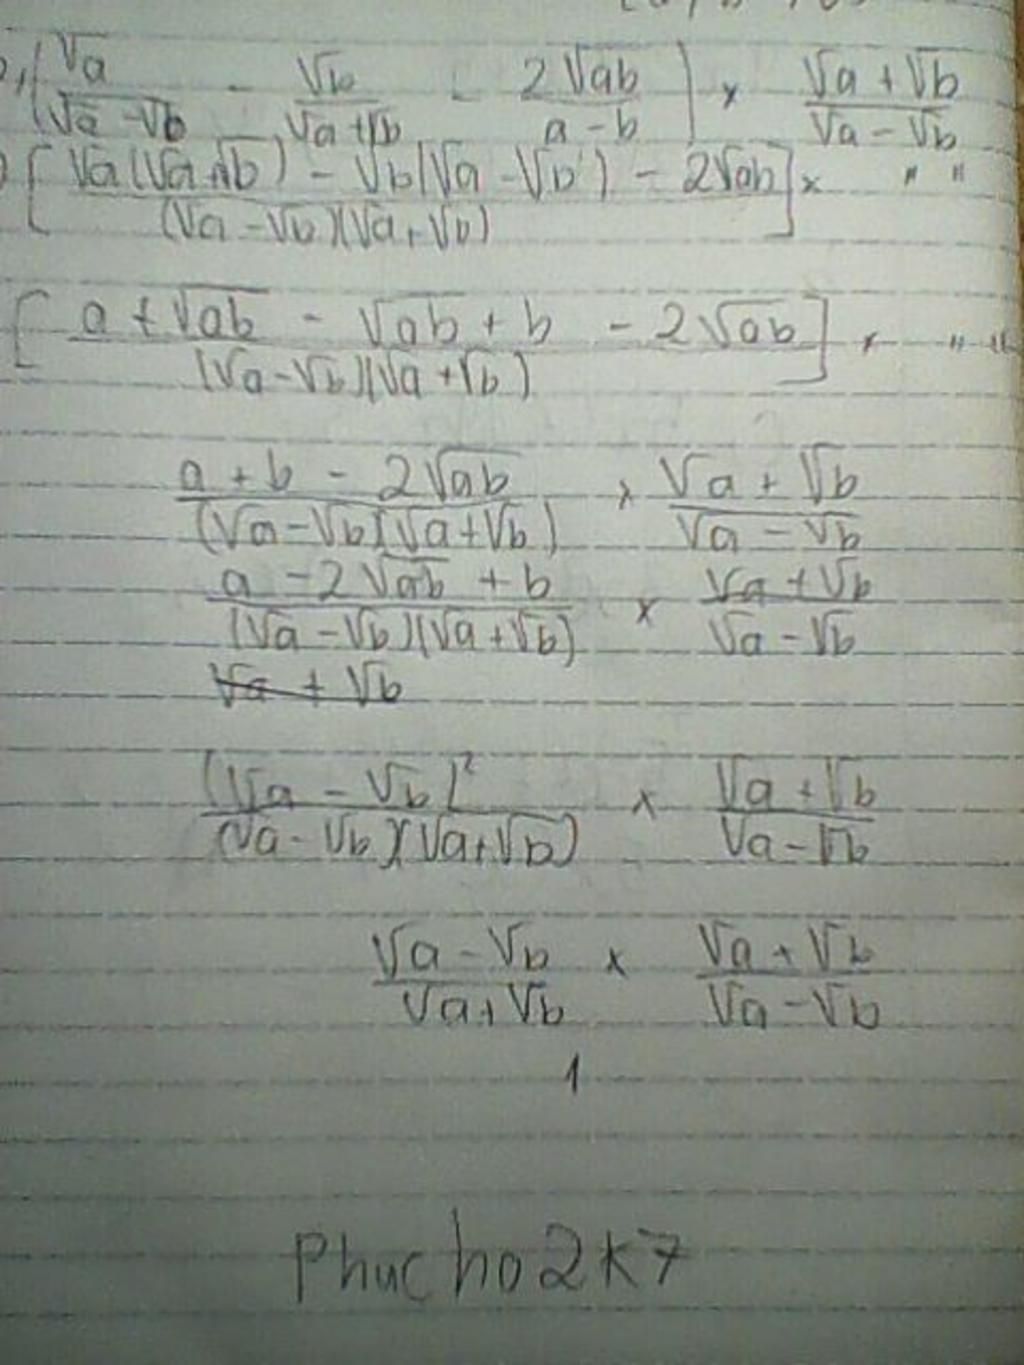 (√a/(√a - √b) - √b/(√a + √b) - 2√ab/(a - b)) × (√a + √b)/(√a - √b)
[(√a(√a + √b) - √b(√a - √b) - 2√ab)/((√a - √b)(√a + √b))] × " "
[(a + √ab - √ab + b - 2√ab)/((√a - √b)(√a + √b))] × " "
(a + b - 2√ab)/((√a - √b)(√a + √b)) × (√a + √b)/(√a - √b)
(a - 2√ab + b)/((√a - √b)(√a + √b)) × (√a + √b)/(√a - √b)
√a + √b
(√a - √b)²/((√a - √b)(√a + √b)) × (√a + √b)/(√a - √b)
(√a - √b)/(√a + √b) × (√a + √b)/(√a - √b)
1
Phuc ho 2k7